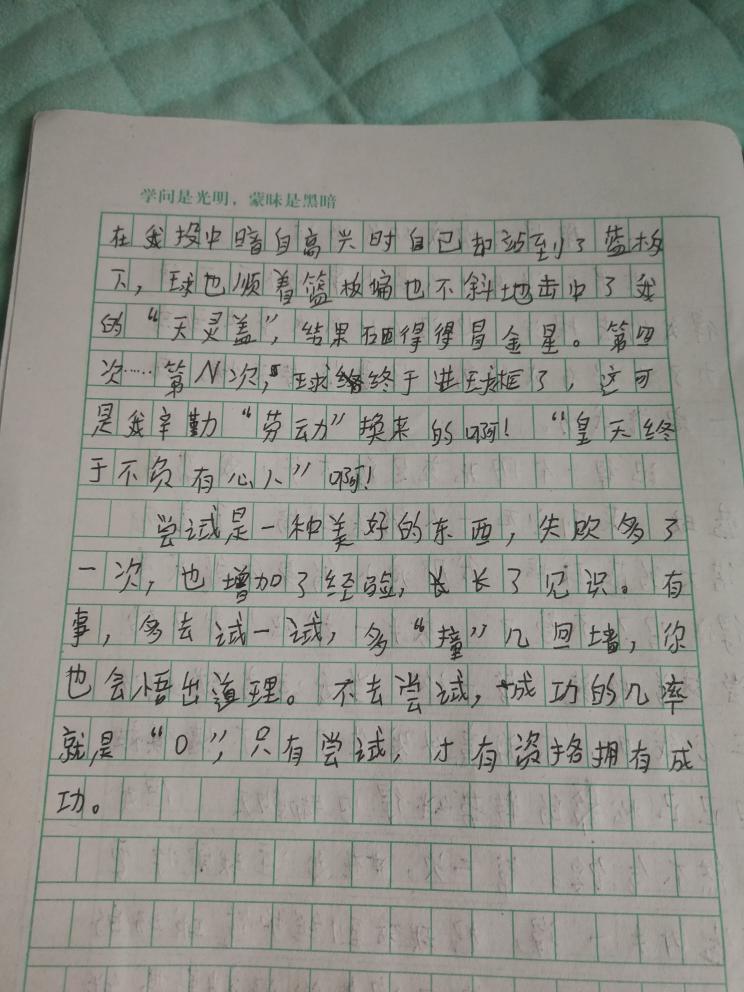 学问是光明，蒙昧是黑暗
在我投中暗自高兴时自己却站到了蓝板
下，球也顺着篮板偏也不斜地击中了我
的“天灵盖”，结果砸得得冒金星。第四
次……第N次，球终于进球框了，这可
是我辛勤“劳动”换来的啊！“皇天终
于不负有心人”啊！
尝试是一种美好的东西，失败多了
一次，也增加了经验，长长了见识。有
事，多去试一试，多“撞”几回墙，你
也会悟出道理。不去尝试，成功的几率
就是“0”，只有尝试，才有资格拥有成
功。